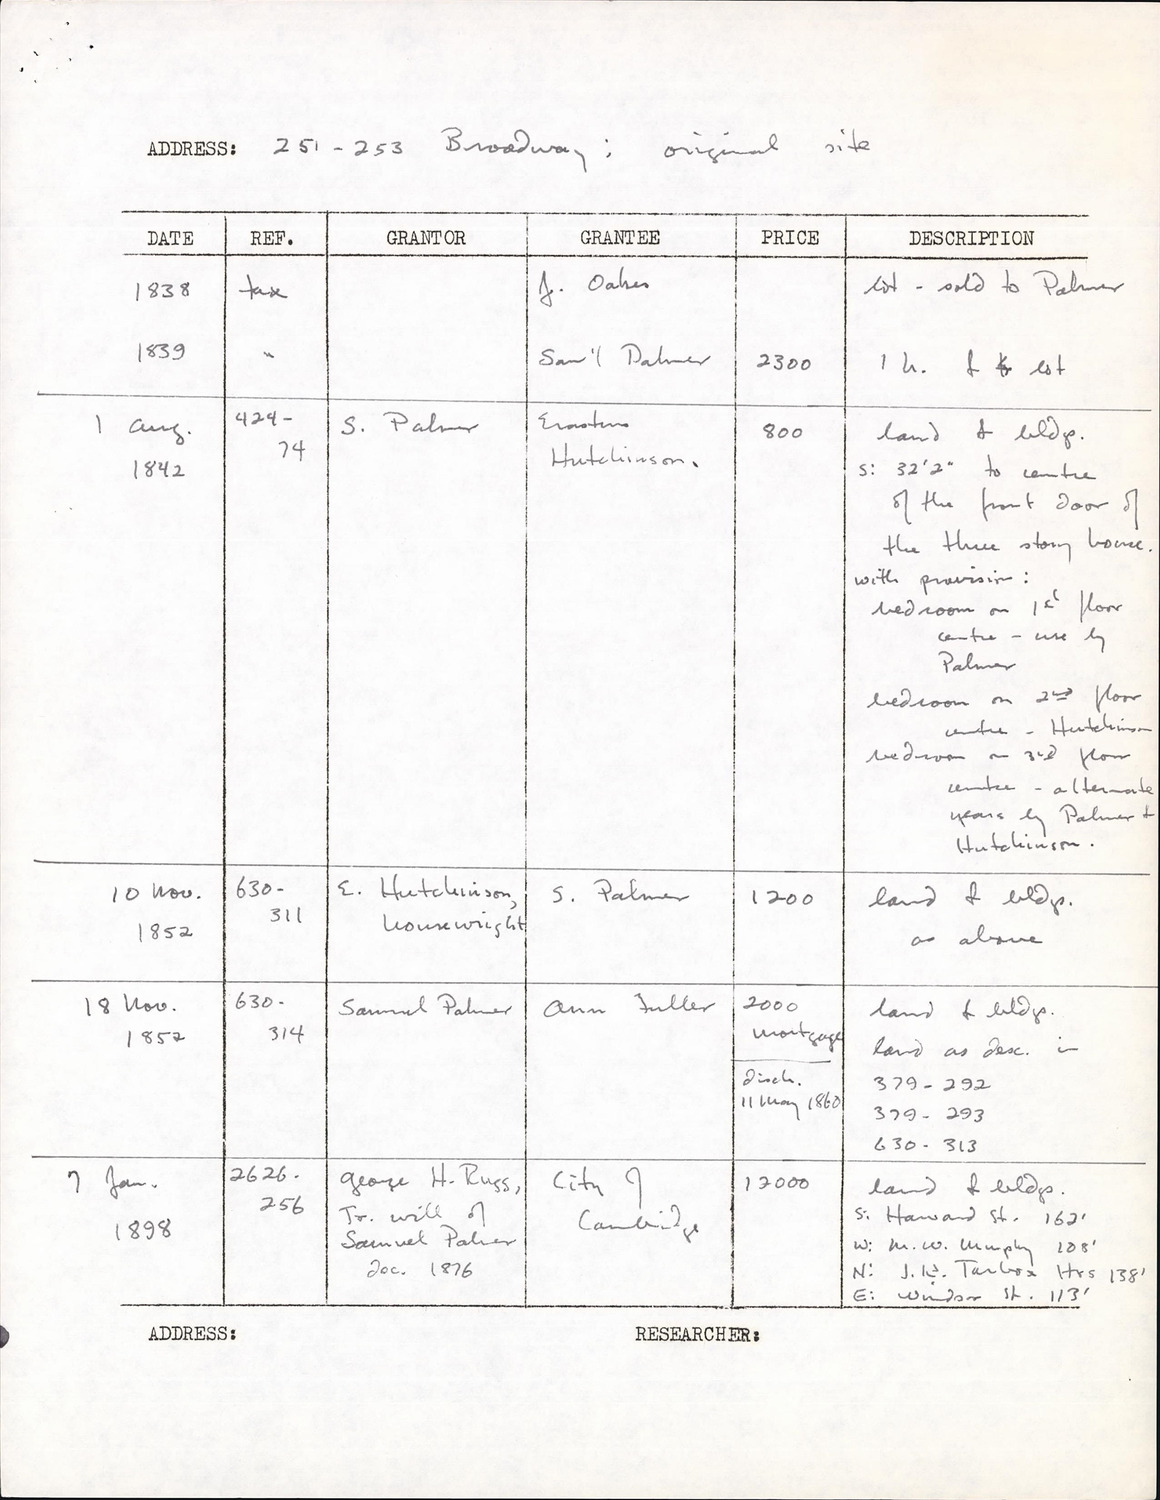 ADDRESS: 251-253 Broadway; original site
DATE REF. GRANTOR GRANTEE PRICE DESCRIPTION
1838 tax J. Oakes lot - sold to Palmer
1839 " Sam'l Palmer 2300 1 h. & lot
1 Aug. 1842
424-74
S. Palmer
Erastus
Hutchinson.
800
land & bldg.
S: 32'2" to centre
of the front door of
the three story house.
with provision:
bedroom on 1st floor
centre - use by
Palmer
bedroom on 2nd floor
centre - Hutchinson
bedroom on 3rd floor
centre - alternate
years by Palmer &
Hutchinson.
10 Nov.
1852
630-
311
E. Hutchinson,
housewright
S. Palmer
1200
land & bldg.
as above
18 Nov.
1852
630-
314
Samuel Palmer
Ann Fuller
2000
mortgage
disch.
11 May 1860
land & bldg.
land as desc. in
379-292
379-293
630-313
7 Jan.
1898
2626-
256
George H. Rugg,
Tr. will of
Samuel Palmer
doc. 1876
City of
Cambridge
12000
land & bldg.
S: Harvard St. 162'
W: M.W. Murphy 108'
N: Tarbox Hrs 138'
E: Windsor St. 113'
ADDRESS: RESEARCHER: